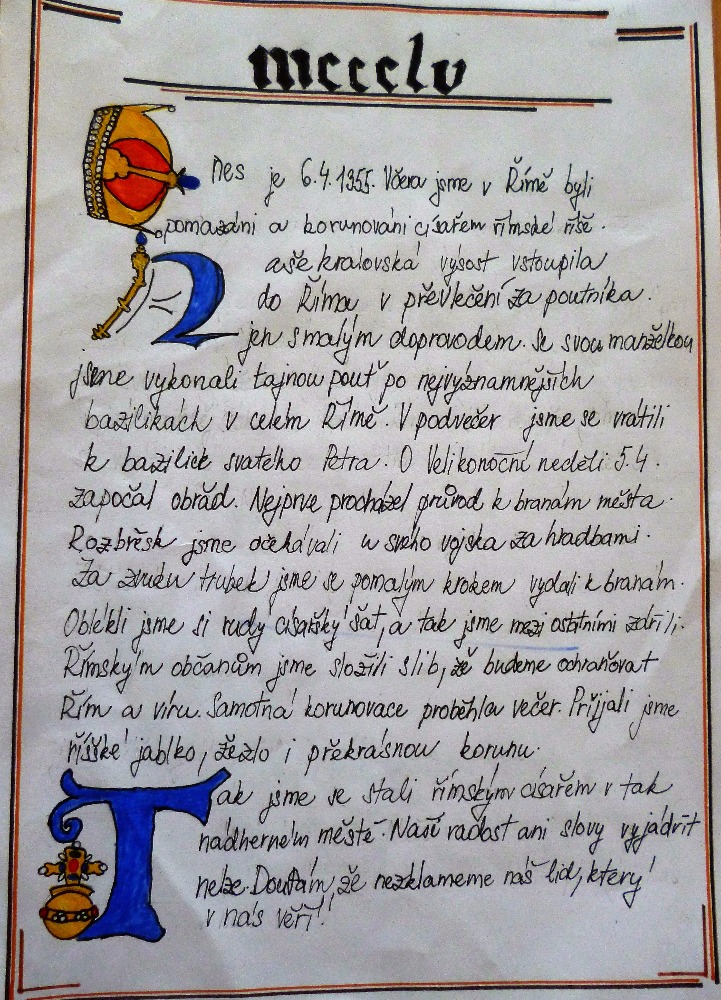 mccclv
Dnes je 6.4.1355. Včera jsme v Římě byli
pomazáni a korunováni císařem římské říše.
Naše kralovská výsost vstoupila
do Říma v převlečení za poutníka.
jen s malým doprovodem. Se svou manželkou
jsme vykonali tajnou pouť po nejvýznamnějších
bazilikách v celém Římě. V podvečer jsme se vrátili
k bazilice svatého Petra. O Velikonoční neděli 5.4.
započal obřad. Nejprve procházel průvod k branám města.
Rozbřesk jsme očekávali u svého vojska za hradbami.
Za zvuku trubek jsme se pomalým krokem vydali k branám.
Oblékli jsme si rudý císařský šat, a tak jsme mezi ostatními zářili.
Římským občanům jsme složili slib, že budeme ochraňovat
Řím a víru. Samotná korunovace proběhla večer. Přijali jsme
říšské jablko, žezlo i překrásnou korunu.
Tak jsme se stali římským císařem v tak
nádherném městě. Naší radost ani slovy vyjádřit
nelze. Doufám, že nezklameme náš lid, který
v nás věří!